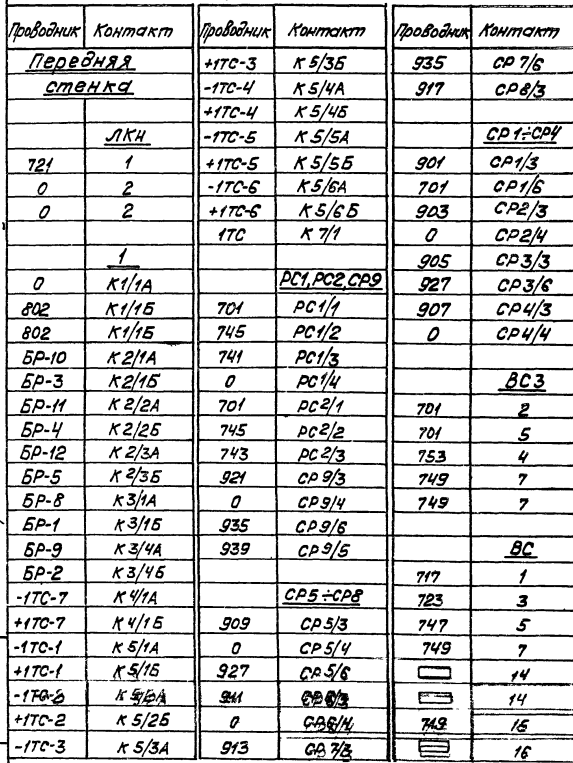 Проводник Контакт
Передняя
стенка
ЛКН
721 1
0 2
0 2
1
0 К1/1А
802 К1/1Б
802 К1/1Б
БР-10 К2/1А
БР-3 К2/1Б
БР-11 К2/2А
БР-4 К2/2Б
БР-12 К2/3А
БР-5 К2/3Б
БР-8 К3/1А
БР-1 К3/1Б
БР-9 К3/4А
БР-2 К3/4Б
-1ТС-7 К4/1А
+1ТС-7 К4/1Б
-1ТС-1 К5/1А
+1ТС-1 К5/1Б
+1ТС-2 К5/2Б
-1ТС-3 К5/3А
Проводник Контакт
+1ТС-3 К5/3Б
-1ТС-4 К5/4А
+1ТС-4 К5/4Б
-1ТС-5 К5/5А
+1ТС-5 К5/5Б
-1ТС-6 К5/6А
+1ТС-6 К5/6Б
1ТС К7/1
РС1,РС2,СР9
701 РС1/1
745 РС1/2
741 РС1/3
0 РС1/4
701 РС2/1
745 РС2/2
743 РС2/3
921 СР9/3
0 СР9/4
935 СР9/6
939 СР9/5
СР5÷СР8
909 СР5/3
0 СР5/4
927 СР5/6
911 СР6/3
0 СР6/4
913 СР7/3
Проводник Контакт
935 СР7/6
917 СР8/3
СР1÷СР4
901 СР1/3
701 СР1/6
903 СР2/3
0 СР2/4
905 СР3/3
927 СР3/6
907 СР4/3
0 СР4/4
ВС3
701 2
701 5
753 4
749 7
749 7
ВС
717 1
723 3
747 5
749 7
14
14
749 16
16